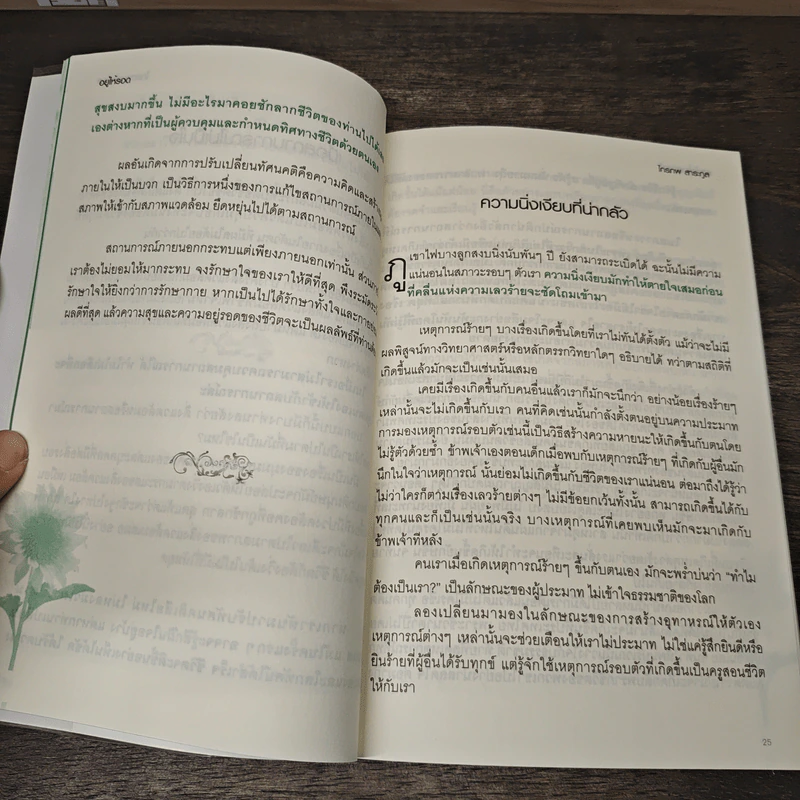 อยู่ให้รอด
สุขสงบมากขึ้น ไม่มีอะไรมาคอยชักลากชีวิตของท่านไปได้
เองต่างหากที่เป็นผู้ควบคุมและกำหนดทิศทางชีวิตด้วยตนเอง
ผลอันเกิดจากการปรับเปลี่ยนทัศนคติคือความคิดและ
ภายในให้เป็นบวก เป็นวิธีการหนึ่งของการแก้ไขสถานการณ์ภายใน
สภาพให้เข้ากับสภาพแวดล้อม ยืดหยุ่นไปได้ตามสถานการณ์
สถานการณ์ภายนอกกระทบแต่เพียงภายนอกเท่านั้น ส่วน
เราต้องไม่ยอมให้มากระทบ จงรักษาใจของเราให้ดีที่สุด พึงระมัดระวัง
รักษาใจให้ยิ่งกว่าการรักษากาย หากเป็นไปได้รักษาทั้งใจและกาย
ผลดีที่สุด แล้วความสุขและความอยู่รอดของชีวิตจะเป็นผลลัพธ์ที่ท่าน
ไกรภพ สาระกูล
ความนิ่งเงียบที่น่ากลัว
ภูเขาไฟบางลูกสงบนิ่งนับพันๆ ปี ยังสามารถระเบิดได้ ฉะนั้นไม่มีความ
แน่นอนในสภาวะรอบๆ ตัวเรา ความนิ่งเงียบมักทำให้ตายใจเสมอก่อน
ที่คลื่นแห่งความเลวร้ายจะซัดโถมเข้ามา
เหตุการณ์ร้ายๆ บางเรื่องเกิดขึ้นโดยที่เราไม่ทันได้ตั้งตัว แม้ว่าจะไม่มี
ผลพิสูจน์ทางวิทยาศาสตร์หรือหลักตรรกวิทยาใดๆ อธิบายได้ ทว่าตามสถิติที่
เกิดขึ้นแล้วมักจะเป็นเช่นนั้นเสมอ
เคยมีเรื่องเกิดขึ้นกับคนอื่นแล้วเราก็มักจะนึกว่า อย่างน้อยเรื่องร้ายๆ
เหล่านั้นจะไม่เกิดขึ้นกับเรา คนที่คิดเช่นนั้นกำลังตั้งตนอยู่บนความประมาท
การมองเหตุการณ์รอบตัวเช่นนี้เป็นวิธีสร้างความหายนะให้เกิดขึ้นกับตนโดย
ไม่รู้ตัวด้วยซ้ำ ข้าพเจ้าเองตอนเด็กเมื่อพบกับเหตุการณ์ร้ายๆ ที่เกิดกับผู้อื่นมัก
นึกในใจว่าเหตุการณ์ นั้นย่อมไม่เกิดขึ้นกับชีวิตของเราแน่นอน ต่อมาถึงได้รู้ว่า
ไม่ว่าใครก็ตามเรื่องเลวร้ายต่างๆ ไม่มีข้อยกเว้นทั้งนั้น สามารถเกิดขึ้นได้กับ
ทุกคนและก็เป็นเช่นนั้นจริง บางเหตุการณ์ที่เคยพบเห็นมักจะมาเกิดกับ
ข้าพเจ้าทีหลัง
คนเราเมื่อเกิดเหตุการณ์ร้ายๆ ขึ้นกับตนเอง มักจะพร่ำบ่นว่า “ทำไม
ต้องเป็นเรา?” เป็นลักษณะของผู้ประมาท ไม่เข้าใจธรรมชาติของโลก
ลองเปลี่ยนมามองในลักษณะของการสร้างอุทาหรณ์ให้ตัวเอง
เหตุการณ์ต่างๆ เหล่านั้นจะช่วยเตือนให้เราไม่ประมาท ไม่ใช่แค่รู้สึกยินดีหรือ
ยินร้ายที่ผู้อื่นได้รับทุกข์ แต่รู้จักใช้เหตุการณ์รอบตัวที่เกิดขึ้นเป็นครูสอนชีวิต
ให้กับเรา
25